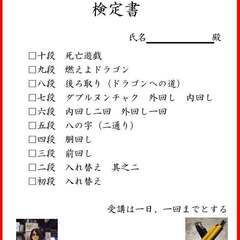 検定書
氏名 殿
□十段 死亡遊戯
□九段 燃えよドラゴン
□八段 後ろ取り（ドラゴンへの道）
□七段 ダブルヌンチャク 外回し 内回し
□六段 内回し二回 外回し一回
□五段 八の字（二通り）
□四段 胴回し
□三段 前回し
□二段 入れ替え 其之二
□初段 入れ替え
受講は一日、一回までとする